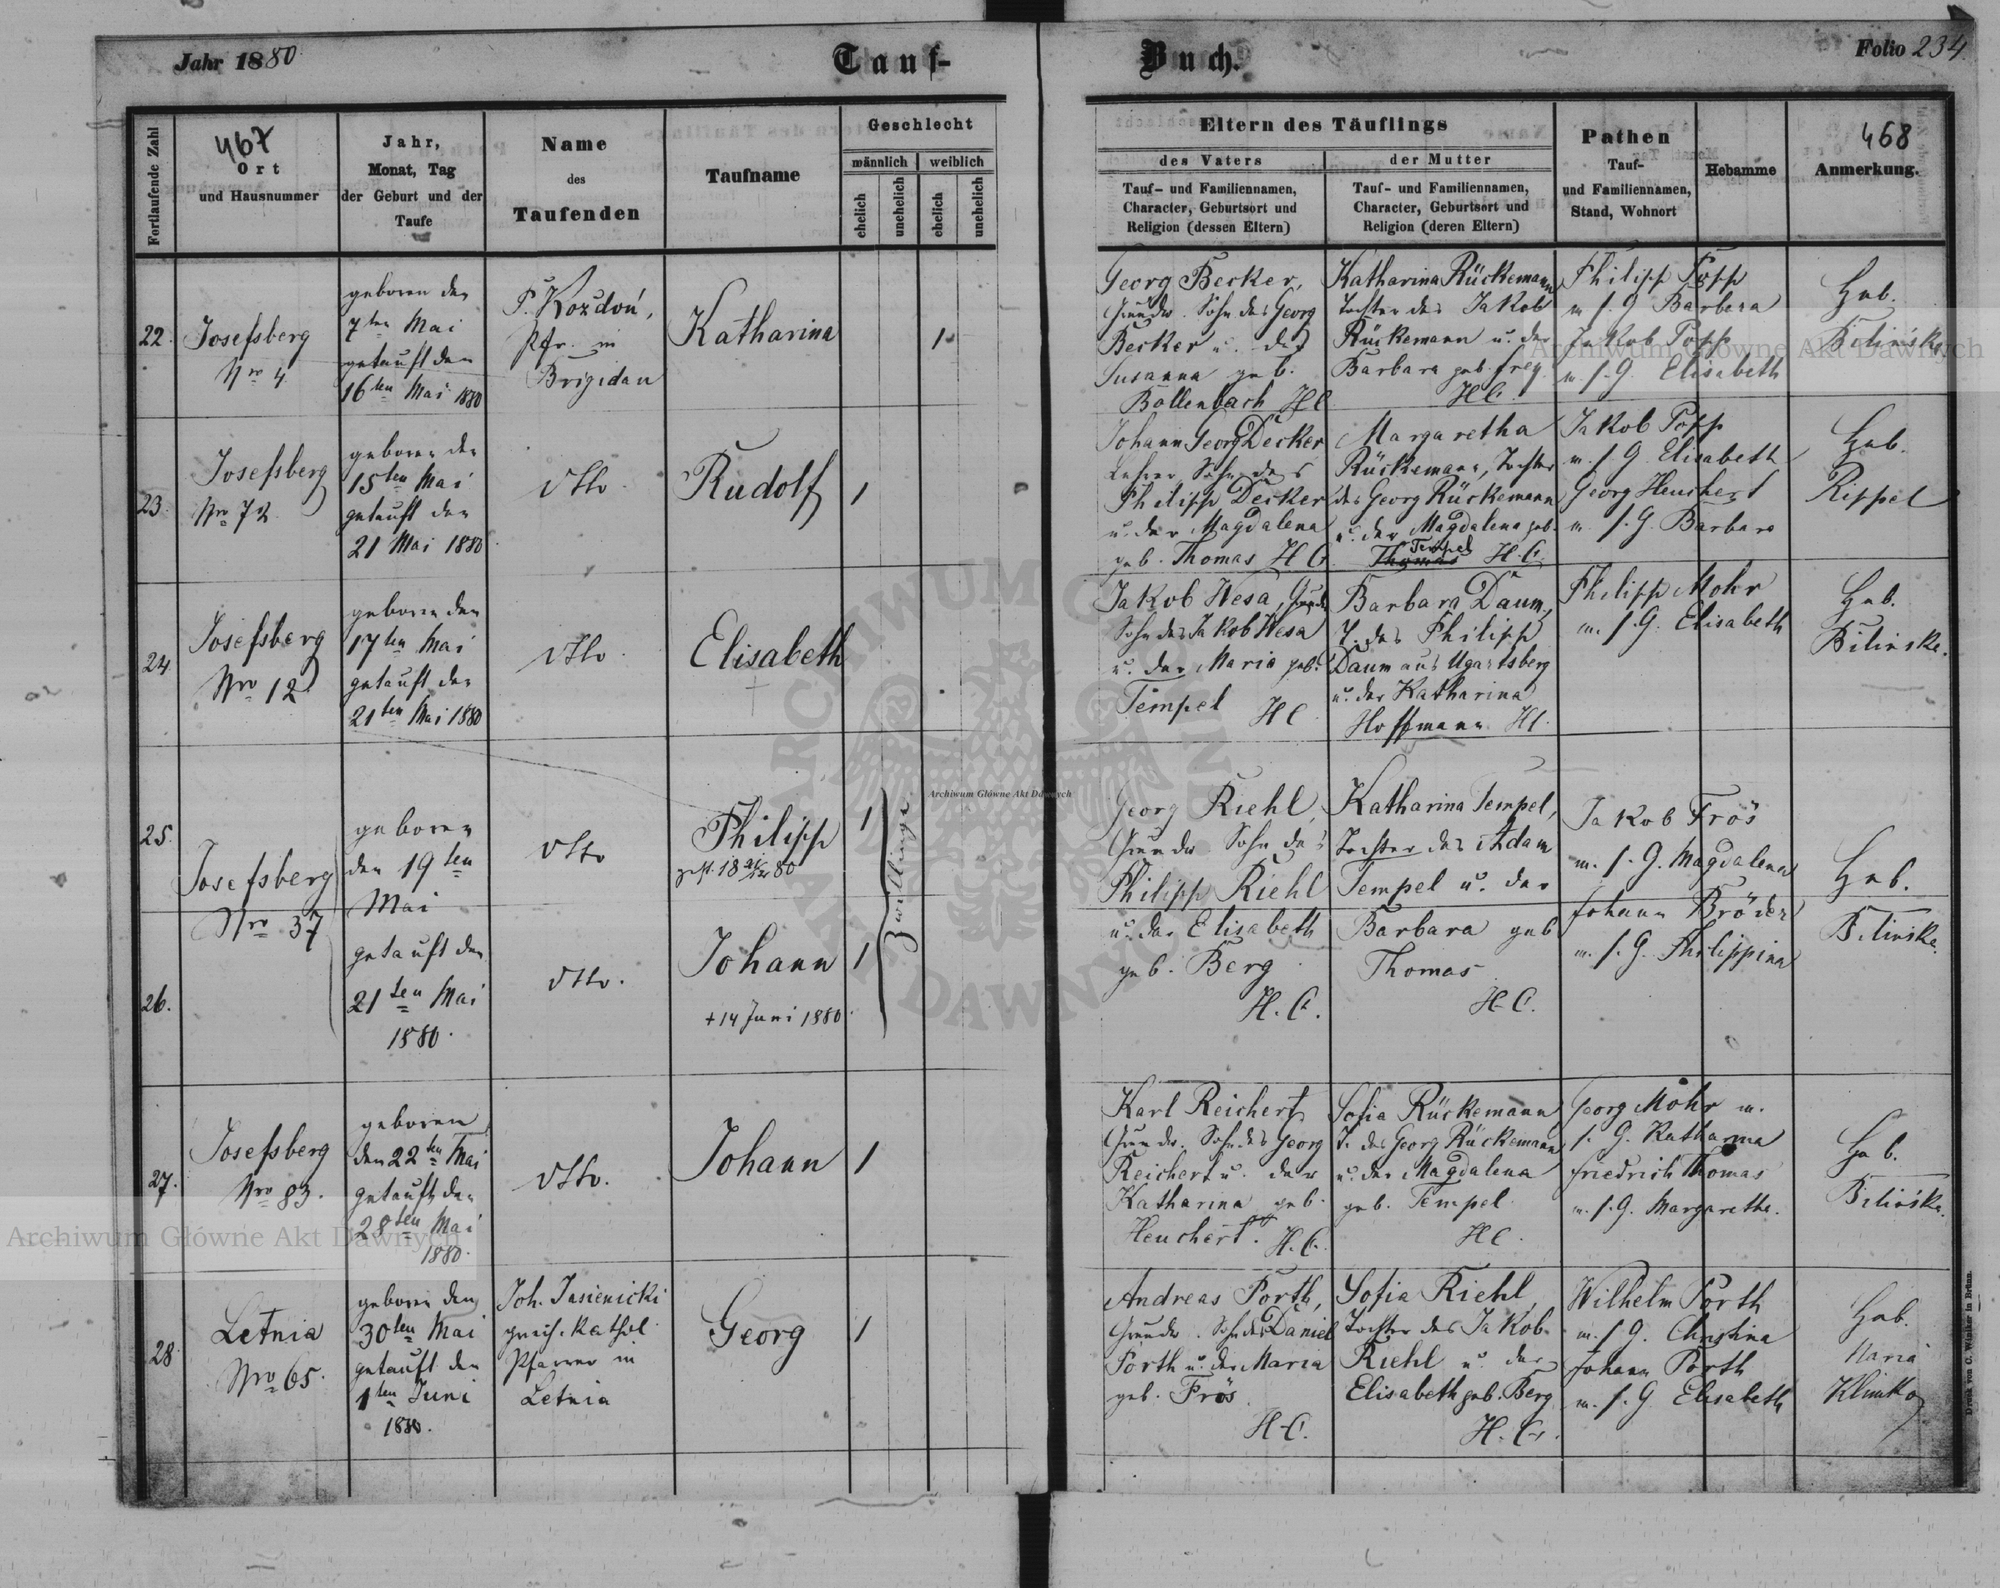 Jahr 1880
Tauf-
Buch.
Folio 234.
467
468
Fortlaufende Zahl
Ort
und Hausnummer
Jahr,
Monat, Tag
der Geburt und der
Taufe
Name
des
Taufenden
Taufname
Geschlecht
männlich
weiblich
ehelich
unehelich
ehelich
unehelich
Eltern des Täuflings
des Vaters
der Mutter
Tauf- und Familiennamen,
Character, Geburtsort und
Religion (dessen Eltern)
Tauf- und Familiennamen,
Character, Geburtsort und
Religion (deren Eltern)
Pathen
Tauf-
und Familiennamen,
Stand, Wohnort
Hebamme
Anmerkung.
22.
Josefsberg
Nro 4
geboren den
7ten Mai
getauft den
16ten Mai 1880
P. Kozdoń,
Pfr. in
Brigidau
Katharina
1.
Georg Becker,
Sohn des Georg
Becker u. der
Susanna geb.
Bollenbach HC
Katharina Rückemann
Tochter des Jakob
Rückemann u. der
Barbara geb. Frey
HC.
Philipp Popp
m. s. G. Barbara
Jakob Popp
m. s. G. Elisabeth
Heb.
Bilińska
23.
Josefsberg
Nro 72
geboren den
15ten Mai
getauft den
21 Mai 1880.
dtto.
Rudolf
1
Johann Georg Decker
Lehrer Sohn des
Philipp Decker
u. der Magdalena
geb. Thomas HC
Margaretha
Rückemann, Tochter
des Georg Rückemann
u. der Magdalena geb.
Tempel
Thomas H.C.
Jakob Popp
m. s. G. Elisabeth
Georg Heuchert
m. s. G. Barbara
Heb.
Rippel
24.
Josefsberg
Nro 12
geboren den
17ten Mai
getauft den
21ten Mai 1880
dtto.
Elisabeth
Jakob Hesa,
Sohn des Jakob Hesa
u. der Maria geb.
Tempel HC
Barbara Daum,
T. des Philipp
Daum aus Ugartsberg
u. der Katharina
Hoffmann HC.
Philipp Mohr
m. s. G. Elisabeth
Heb.
Bilinska.
25.
26.
Josefsberg
Nro 37
geboren
den 19ten
Mai
getauft den
21ten Mai
1880.
dtto
Philipp
1
dtto.
Johann
1
+ 14 Juni 1880.
Zwillinge
Georg Riehl,
Sohn des
Philipp Riehl
u. der Elisabeth
geb. Berg
H.C.
Katharina Tempel,
Tochter des Adam
Tempel u. der
Barbara geb
Thomas
H.C.
Jakob Frös
m. s. G. Magdalena
Johann Bröder
m. s. G. Philippina
Heb.
Bilinska.
27.
Josefsberg
Nro 83.
geboren
den 22ten Mai
getauft den
28ten Mai
1880.
dtto.
Johann
1
Karl Reichert
Sohn des Georg
Reichert u. der
Katharina geb.
Heuchert. H.C.
Sofia Rückemann
T. des Georg Rückemann
u. der Magdalena
geb. Tempel
HC.
Georg Mohr m.
s. G. Katharina
Friedrich Thomas
m. s. G. Margaretha.
Heb.
Bilińska.
28
Letnia
Nro 65.
geboren den
30ten Mai
getauft den
1ten Juni
1880.
Joh. Jasienicki
griech. Kathol.
Pfarrer in
Letnia
Georg
1
Andreas Porth,
Sohn des Daniel
Porth u. der Maria
geb. Frös
H.C.
Sofia Riehl,
Tochter des Jakob
Riehl u. der
Elisabeth geb. Berg
H.C.
Wilhelm Porth
m. s. G. Christina
Johann Porth
m. s. G. Elisabeth
Heb.
Maria
Klimko
Druck von C. Winiker in Brünn.
Archiwum Główne Akt Dawnych
Archiwum Główne Akt Dawnych
Archiwum Główne Akt Dawnych